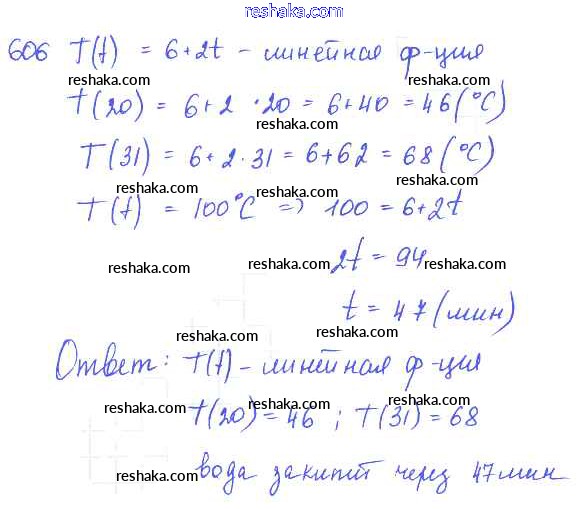 reshaka.com
606 T(t) = 6+2t - линейная ф-ция
reshaka.com reshaka.com reshaka.com
T(20) = 6+2·20 = 6+40 = 46(°C)
reshaka.com reshaka.com reshaka.com
T(31) = 6+2·31 = 6+62 = 68(°C)
reshaka.com reshaka.com reshaka.com
T(t) = 100°C => 100 = 6+2t
reshaka.com reshaka.com reshaka.com
2t = 94
t = 47(мин)
reshaka.com reshaka.com reshaka.com
Ответ: T(t) - линейная ф-ция
reshaka.com reshaka.com reshaka.com
T(20)=46 ; T(31)=68
вода закипит через 47 мин
reshaka.com reshaka.com reshaka.com